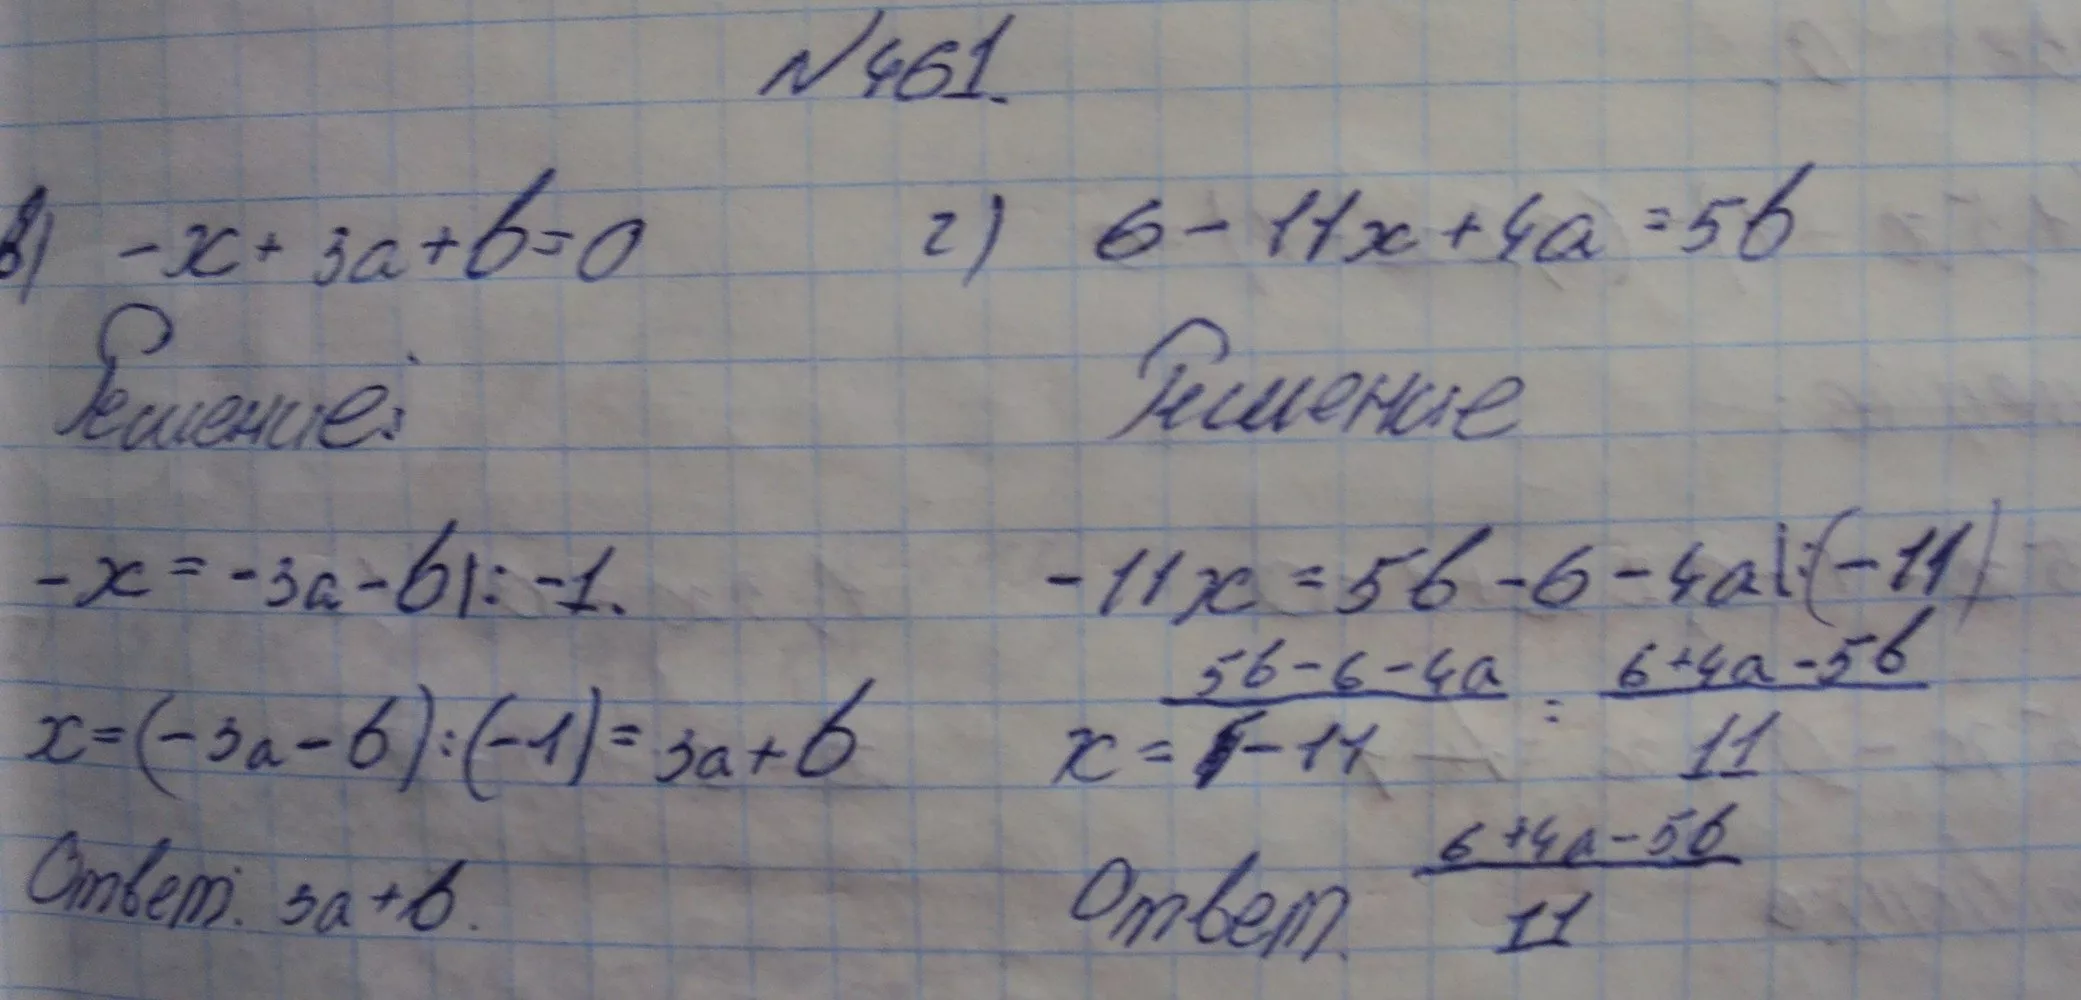 №461.
в) -x + 3a + b = 0
Решение:
-x = -3a - b |: -1.
x = (-3a - b) : (-1) = 3a + b
Ответ: 3a + b.
г) 6 - 11x + 4a = 5b
Решение
-11x = 5b - 6 - 4a |: (-11)
x = \frac{5b - 6 - 4a}{-11} = \frac{6 + 4a - 5b}{11}
Ответ. \frac{6 + 4a - 5b}{11}